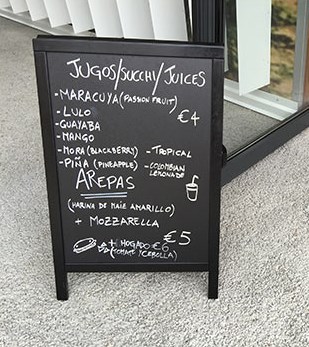 JUGOS/SUCCHI/JUICES
-MARACUYA (PASSION FRUIT)
-LULO
€4
-GUAYABA
-MANGO
-MORA (BLACKBERRY)
-TROPICAL
-PIÑA (PINEAPPLE)
-COLOMBIAN LEMONADE
AREPAS
(HARINA DE MAIZ AMARILLO)
+ MOZZARELLA
€5
+ HOGADO €6
(TOMATE/CEBOLLA)